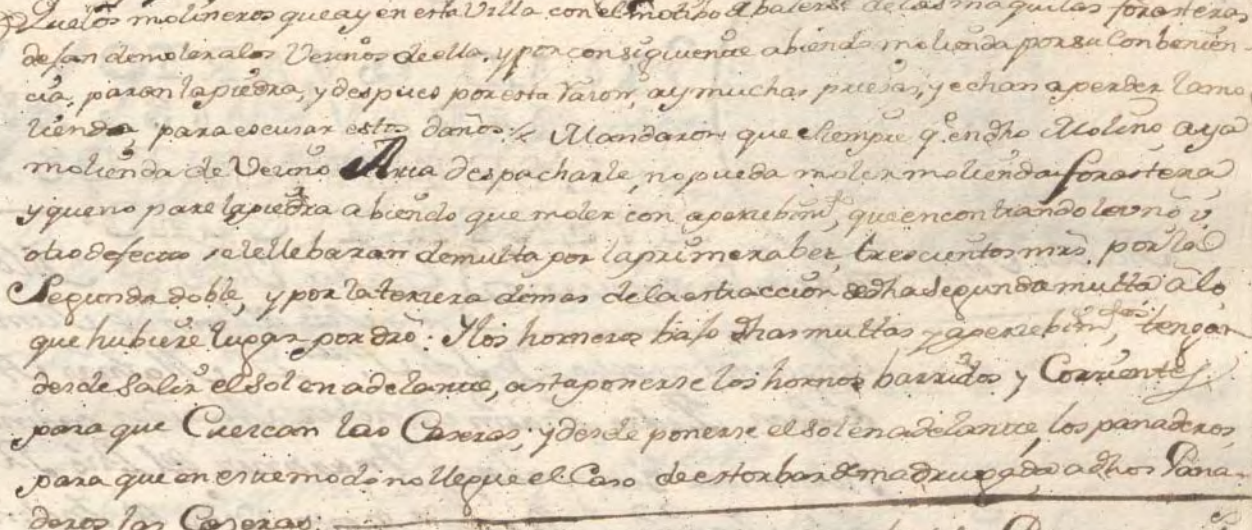 Que los molineros que ay en esta Villa con el motibo de balerse de las maquilas forasteras
dejan de moler a los Vecinos de ella, y por consiguiente abiendo molienda por su Combenien-
cia, paran la piedra, y despues por esta razon, ay muchas priesas, y echan a perder la mo
lienda, para escusar estos daños: Mandaron que siempre q.e en dho Molino aya
molienda de Vecino Aria despacharle, no pueda moler molienda forastera
y que no pare la piedra abiendo que moler con apercebim.to, que encontrandole uno u
otro defecto se le llebaran de multa por la primera bez, trescientos mrs, por la
Segunda doble, y por la tercera demas de la estraccion de dha segunda multa a lo
que hubiere lugar por dro. Y los horneros bajo dhas multas y apercebim.tos, tengan
desde Salir el Sol en adelante, asta ponerse los hornos barridos y Corrientes
para que Cuezcan las Caseras; y desde ponerse el Sol en adelante, los panaderos,
para que en este modo no llegue el Caso de estorbar de madrugada a dhos Pana-
deros las Caseras.